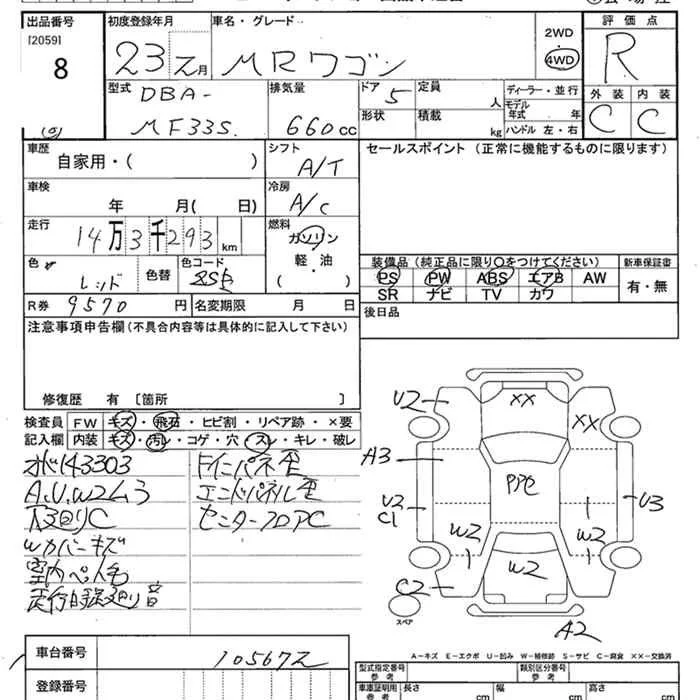 出品番号 初度登録年月 車名・グレード 2WD 評価点
[2059]
8 23 2月 MRワゴン 4WD R
型式 DBA- 排気量 ドア 5 定員 人 ディーラー・並行 外装 内装
MF33S 660cc 形状 積載 kg モデル年式 年 C C
ハンドル 左・右
車歴 シフト セールスポイント (正常に機能するものに限ります)
自家用・( ) A/T
車検 冷房
年 月( 日) A/C
走行 燃料
14万3千293km ガソリン
色 レッド 色替 色コード 軽・油
( )
装備品 (純正品に限り○をつけてください) 新車保証書
PS PW ABS エアB AW 有・無
SR ナビ TV カワ
R券 9570円 名変期限 月 日 後日品
注意事項申告欄(不具合内容等は具体的に記入して下さい)
修復歴 有 [箇所 ]
検査員 FW キズ・飛石・ヒビ割・リペア跡・×要
記入欄 内装 キズ・汚レ・コゲ・穴・スレ・キレ・破レ
143303 パネ歪
A.U.W2ムラ エンドパネル歪
下廻りC センターフロアC
Wカバーキズ
室内ペ人毛
走行時足廻り音
U2 XX XX
A3 PPC
U2 C1 U3
W2 W2 W2
C2 A2
スペア
A-キズ E-エクボ U-凹み W-補修跡 S-サビ C-腐食 XX-交換済
車台番号 105672
登録番号
型式指定番号 参考 類別区分番号 参考
車庫証明用 参考 長さ cm 幅 cm 高さ cm